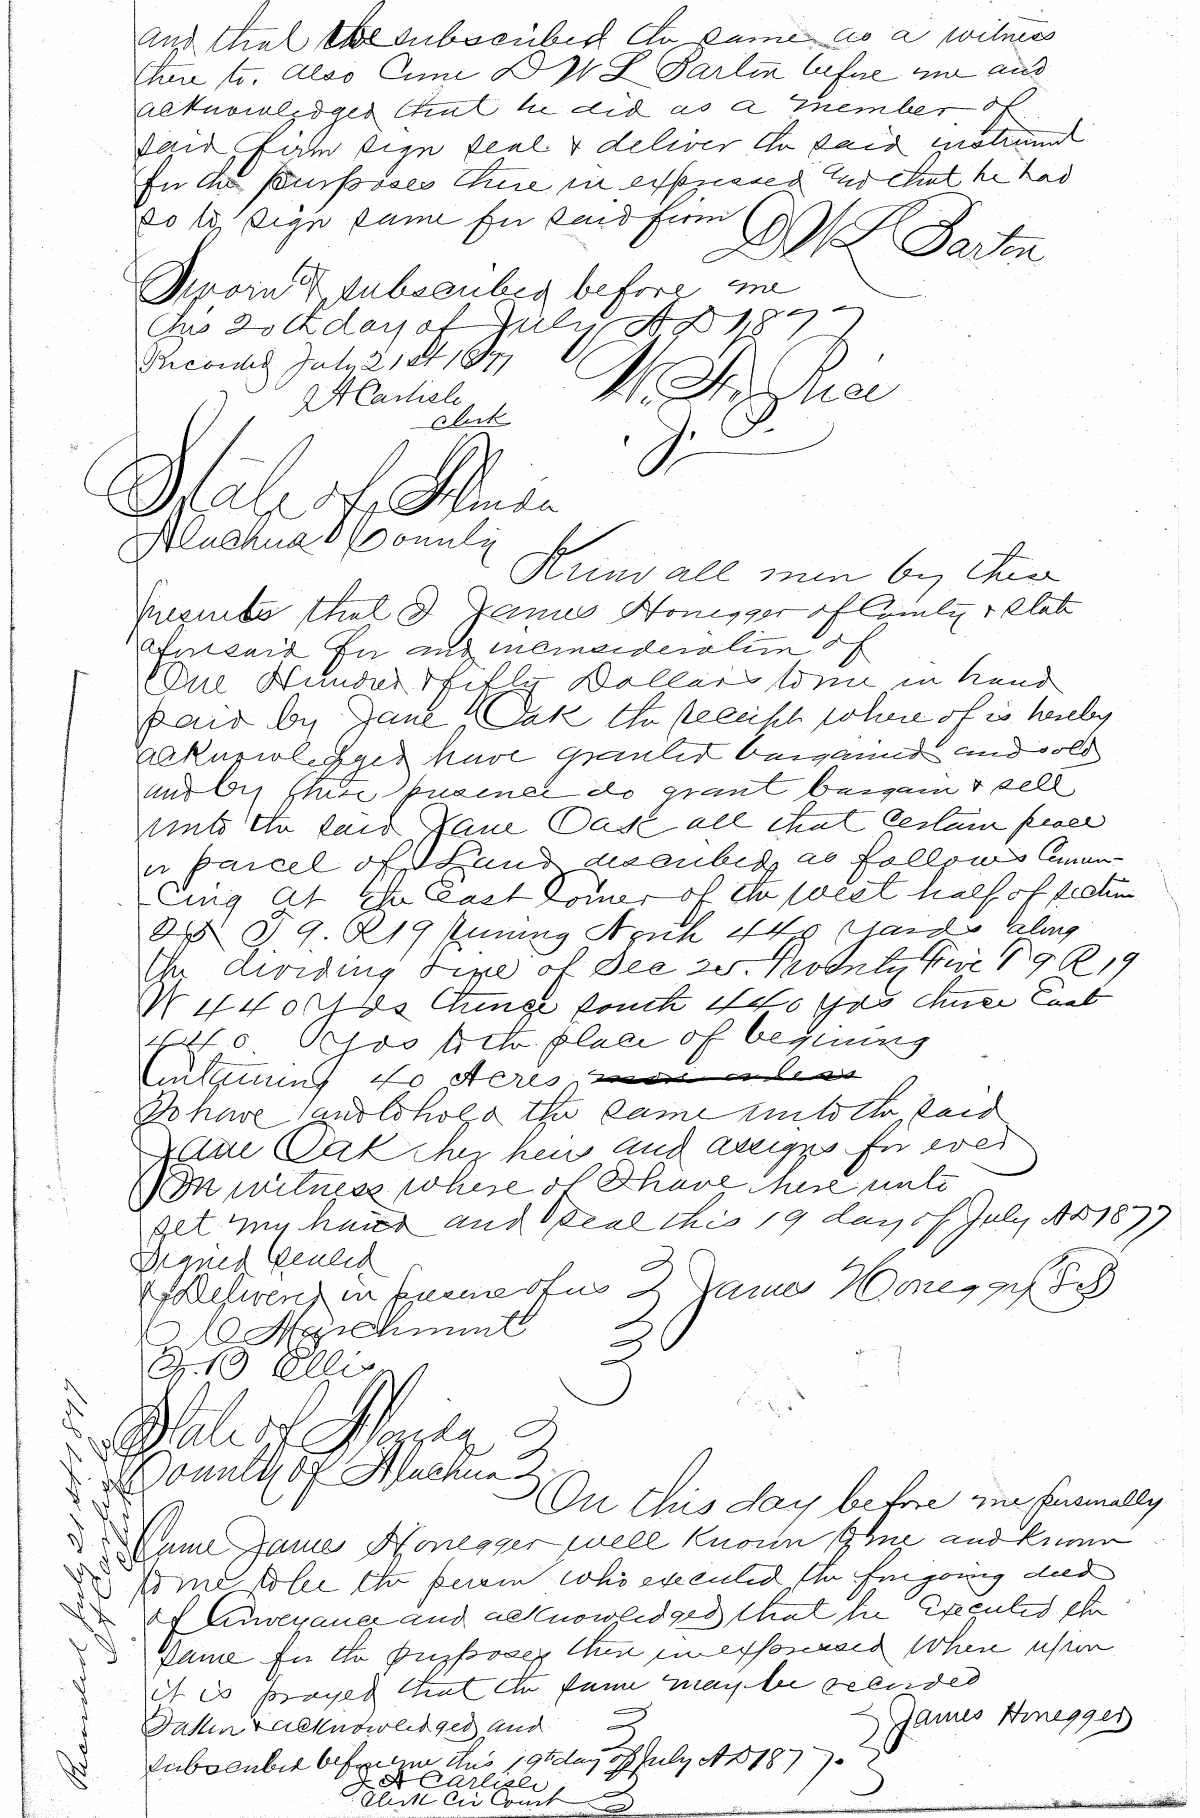 and that he subscribed the same as a witness
there to. Also Came D W L Barton before me and
acknowledged that he did as a member of
said firm sign seal & deliver the said instrument
for the purposes there in expressed and that he had
so to sign same for said firm
D W L Barton
Sworn to & subscribed before me
this 20th day of July AD 1877
Recorded July 21st 1877
J A Carlisle
Clerk
J. P.
State of Florida
Alachua County
Know all men by these
presents that I James Honegger of County & State
aforesaid for and in consideration of
One Hundred & fifty Dollars to me in hand
paid by Jane Oak the receipt where of is hereby
acknowledged have granted bargained and sold
and by these presence do grant bargain & sell
unto the said Jane Oak all that certain peace
or parcel of Land described as follows Comen-
cing at the East Corner of the west half of section
T 9. R 19 runing North 440 yards along
the dividing line of Sec 25. Twenty Five T 9 R 19
W 440 Yds thence south 440 yds thence East
440 Yds to the place of begining
Containing 40 Acres more or less
To have and to hold the same unto the said
Jane Oak her heirs and assigns for ever
In witness where of I have here unto
set my hand and seal this 19 day of July AD 1877
Signed sealed
& Delivered in presence of us James Honegger
Marchment
Ellis
State of Florida
County of Alachua
On this day before me personally
Came James Honegger well known to me and known
to me to be the person who executed the foregoing deed
of Conveyance and acknowledged that he Executed the
same for the purposes there in expressed where upon
it is prayed that the same may be recorded
Taken & acknowledged and
James Honegger
subscribed before me this 19th day of July AD 1877.
J A Carlisle
Clerk Cir Court
Recorded July 21st 1877
J A Carlisle